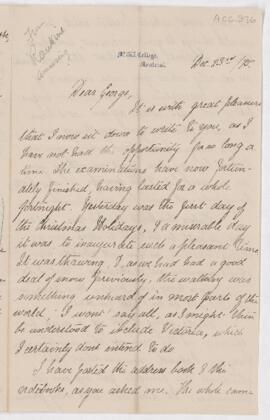 ACC. 976
Jim
Hawkins
answering
McGill College,
Montreal.
Dec. 23rd /95.
Dear George,
It is with great pleasure
that I now sit down to write to you, as I
have not had the opportunity for so long a
time. The examinations have now fortun-
ately finished, having lasted for a whole
fortnight. Yesterday was the first day of
the Christmas Holidays, & a miserable day
it was to inaugurate such a pleasant time.
It was thawing, & as we had had a good
deal of snow previously, the walking was
something unheard of in most parts of the
world; I won't say all, as I might then
be understood to include Victoria, which
I certainly dont intend to do.
I have posted the address book & the
as you asked me. The whole came